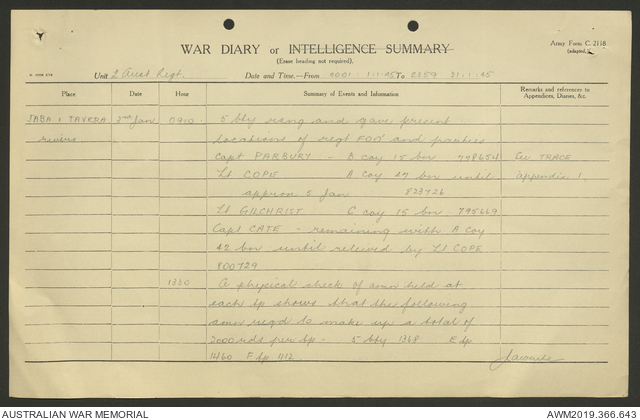 WAR DIARY or INTELLIGENCE SUMMARY
(Erase heading not required).
Army Form C. 2118
(adapted).
Unit 2 Aust Regt. Date and Time—From 0001 1:1:45 To 2359 31:1:45
Place Date Hour Summary of Events and Information Remarks and references to Appendices, Diaries, &c.
JABA & TAVERA 2nd Jan 0910 5 bty rang and gave present
rivers locations of regt FOO's and parties
Capt PARBURY - A coy 15 bn 778654 See TRACE
Lt COPE A coy 47 bn until appendix 1
approx 5 Jan 823726
Lt GILCHRIST C coy 15 bn 795669
Capt CATE - remaining with A coy
42 bn until relieved by Lt COPE
800729
1330 A physical check of amn held at
each tp shows that the following
amn reqd to make up a total of
2000 rds per tp - 5 bty 1368 E tp
1460 F tp 1112
AUSTRALIAN WAR MEMORIAL AWM2019.366.643